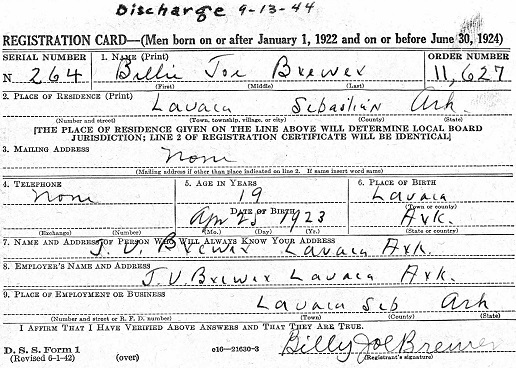 Discharge 9-13-44
REGISTRATION CARD—(Men born on or after January 1, 1922 and on or before June 30, 1924)
SERIAL NUMBER 1. NAME (Print) ORDER NUMBER
N 264 Billie Joe Brewer 11,627
(First) (Middle) (Last)
2. PLACE OF RESIDENCE (Print)
Lavaca Sebastian Ark
(Number and street) (Town, township, village, or city) (County) (State)
[THE PLACE OF RESIDENCE GIVEN ON THE LINE ABOVE WILL DETERMINE LOCAL BOARD
JURISDICTION; LINE 2 OF REGISTRATION CERTIFICATE WILL BE IDENTICAL]
3. MAILING ADDRESS
None
(Mailing address if other than place indicated on line 2. If same insert word same)
4. TELEPHONE 5. AGE IN YEARS 6. PLACE OF BIRTH
None 19 Lavaca
DATE OF BIRTH (Town or county)
Apr 25 1923 Ark.
(Exchange) (Number) (Mo.) (Day) (Yr.) (State or country)
7. NAME AND ADDRESS OF PERSON WHO WILL ALWAYS KNOW YOUR ADDRESS
J. V. Brewer Lavaca Ark.
8. EMPLOYER'S NAME AND ADDRESS
J. V. Brewer Lavaca Ark.
9. PLACE OF EMPLOYMENT OR BUSINESS
Lavaca Seb Ark
(Number and street or R. F. D. number) (Town) (County) (State)
I AFFIRM THAT I HAVE VERIFIED ABOVE ANSWERS AND THAT THEY ARE TRUE.
D. S. S. Form 1 Billy Joe Brewer
(Revised 6-1-42) (over) c16—21630-3 (Registrant's signature)